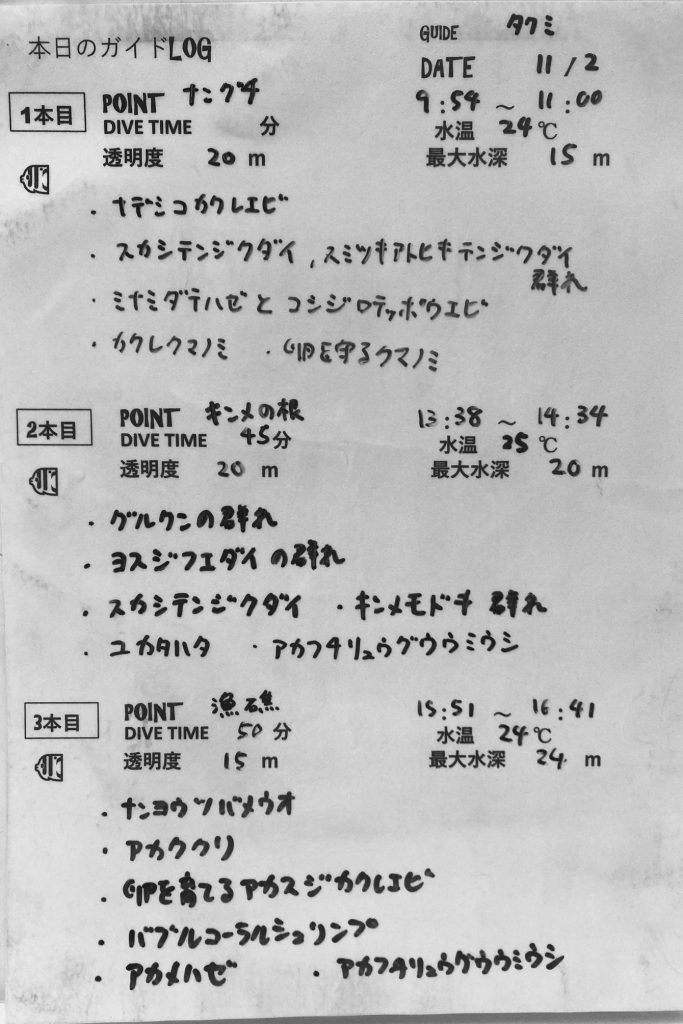 本日のガイドLOG
GUIDE タクミ
DATE 11/2
1本目
POINT ナングチ
9:54 ~ 11:00
DIVE TIME 分
水温 24℃
透明度 20 m
最大水深 15 m
・ナデシコカクレエビ
・スカシテンジクダイ, スミツキアトヒキテンジクダイ
群れ
・ミナミダテハゼ と コシジロテッポウエビ
・カクレクマノミ ・卵を守るクマノミ
2本目
POINT キンメの根
13:38 ~ 14:34
DIVE TIME 45分
水温 25℃
透明度 20 m
最大水深 20 m
・グルクンの群れ
・ヨスジフエダイの群れ
・スカシテンジクダイ ・キンメモドキ 群れ
・ユカタハタ ・アカフチリュウグウウミウシ
3本目
POINT 漁礁
15:51 ~ 16:41
DIVE TIME 50分
水温 24℃
透明度 15 m
最大水深 24 m
・ナンヨウツバメウオ
・アカククリ
・卵を育てるアカスジカクレエビ
・バブルコーラルシュリンプ
・アカメハゼ ・アカフチリュウグウウミウシ